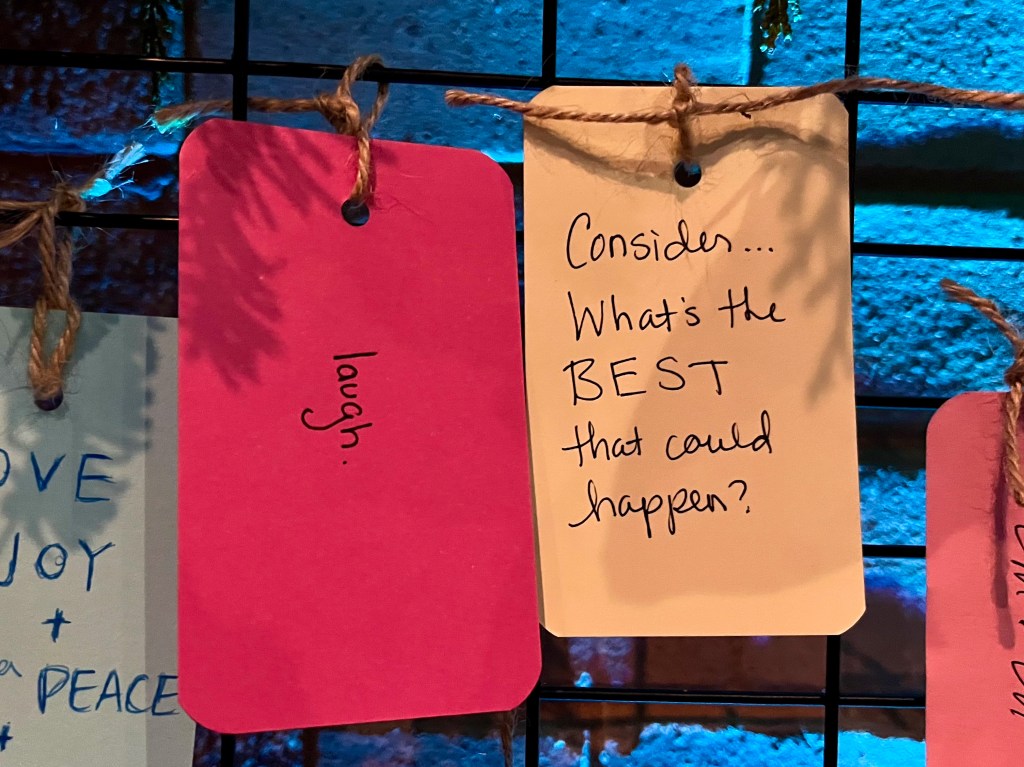 JOY
+
PEACE
+
laugh.
Consider...
What's the
BEST
that could
happen?